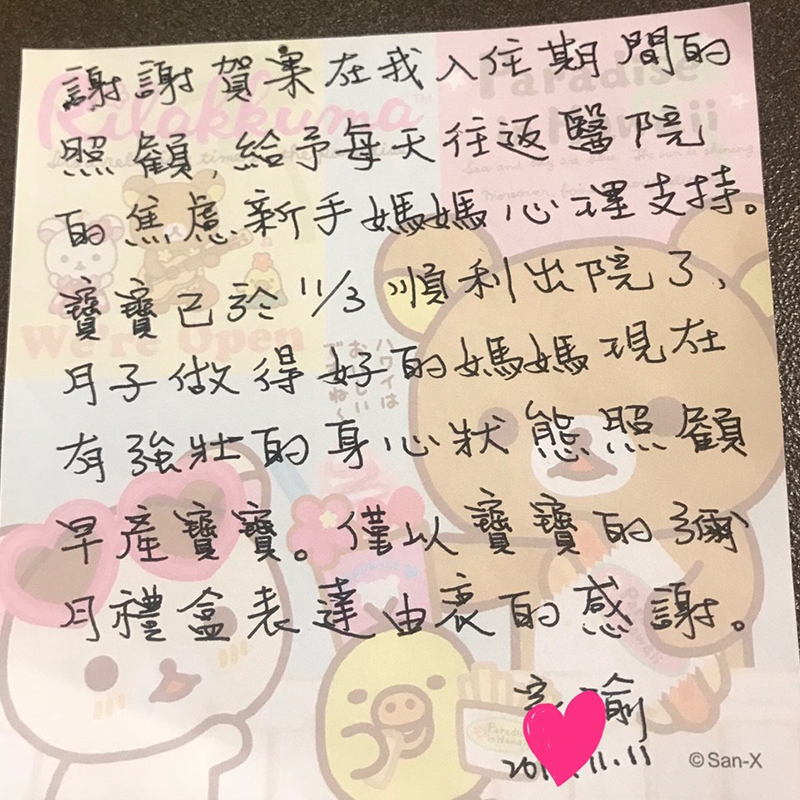 謝謝賀果在我入住期間的
照顧,給予每天往返醫院
的焦慮新手媽媽心理支持。
寶寶已於11/3順利出院了,
月子做得好的媽媽現在
有強壯的身心狀態照顧
早產寶寶。僅以寶寶的彌
月禮盒表達由衷的感謝。
瑜
11.11
Rilakkuma
Paradise
We're Open
ハワイは
おいしい
ですね~
©San-X